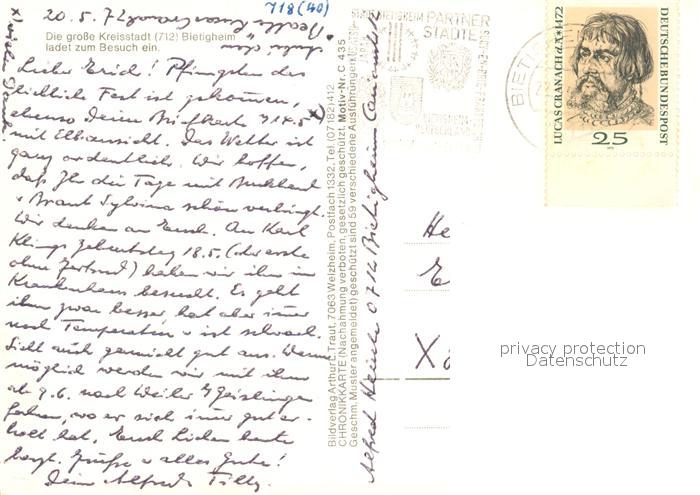 20. 5. 72
718 (40)
Die große Kreisstadt (712) Bietigheim
ladet zum Besuch ein.
Lieber Erich! Pfingsten das
liebliche Fest ist gekommen,
ebenso Deine
mit Elbaussicht. Das Wetter ist
ganz ordentlich. Wir hoffen,
daß Ihr die Tage mit
Braut Sylvina schön verbringt.
Wir denken an Euch. An Karl
Klings Geburtstag 18.5. (der erste
ohne Gertrud) haben wir ihn im
Krankenhaus besucht. Es geht
ihm zwar besser, hat aber immer
noch Temperatur u ist schwach.
Sieht auch garnicht gut aus. Wenn
möglich werden wir mit ihm
ab 9.6. nach Weiler b Geislingen
fahren, wo er sich immer gut er-
holt hat. Euch Lieben heute
herzl. Grüße u alles Gute!
Dein Alfred + Tilly
Bildverlag Arthur F. Traut, 7063 Welzheim, Postfach 1332, Tel. (07182) 412
CHRONIKKARTE (Nachahmung verboten, gesetzlich geschützt, Motiv-Nr. C 435
Geschm. Muster angemeldet) geschützt sind 59 verschiedene Ausführungen
Alfred 712 Bietigheim
PARTNER
STÄDTE
BIETIGHEIM
LUCAS CRANACH d.Ä. *1472
DEUTSCHE BUNDESPOST
25
privacy protection
Datenschutz